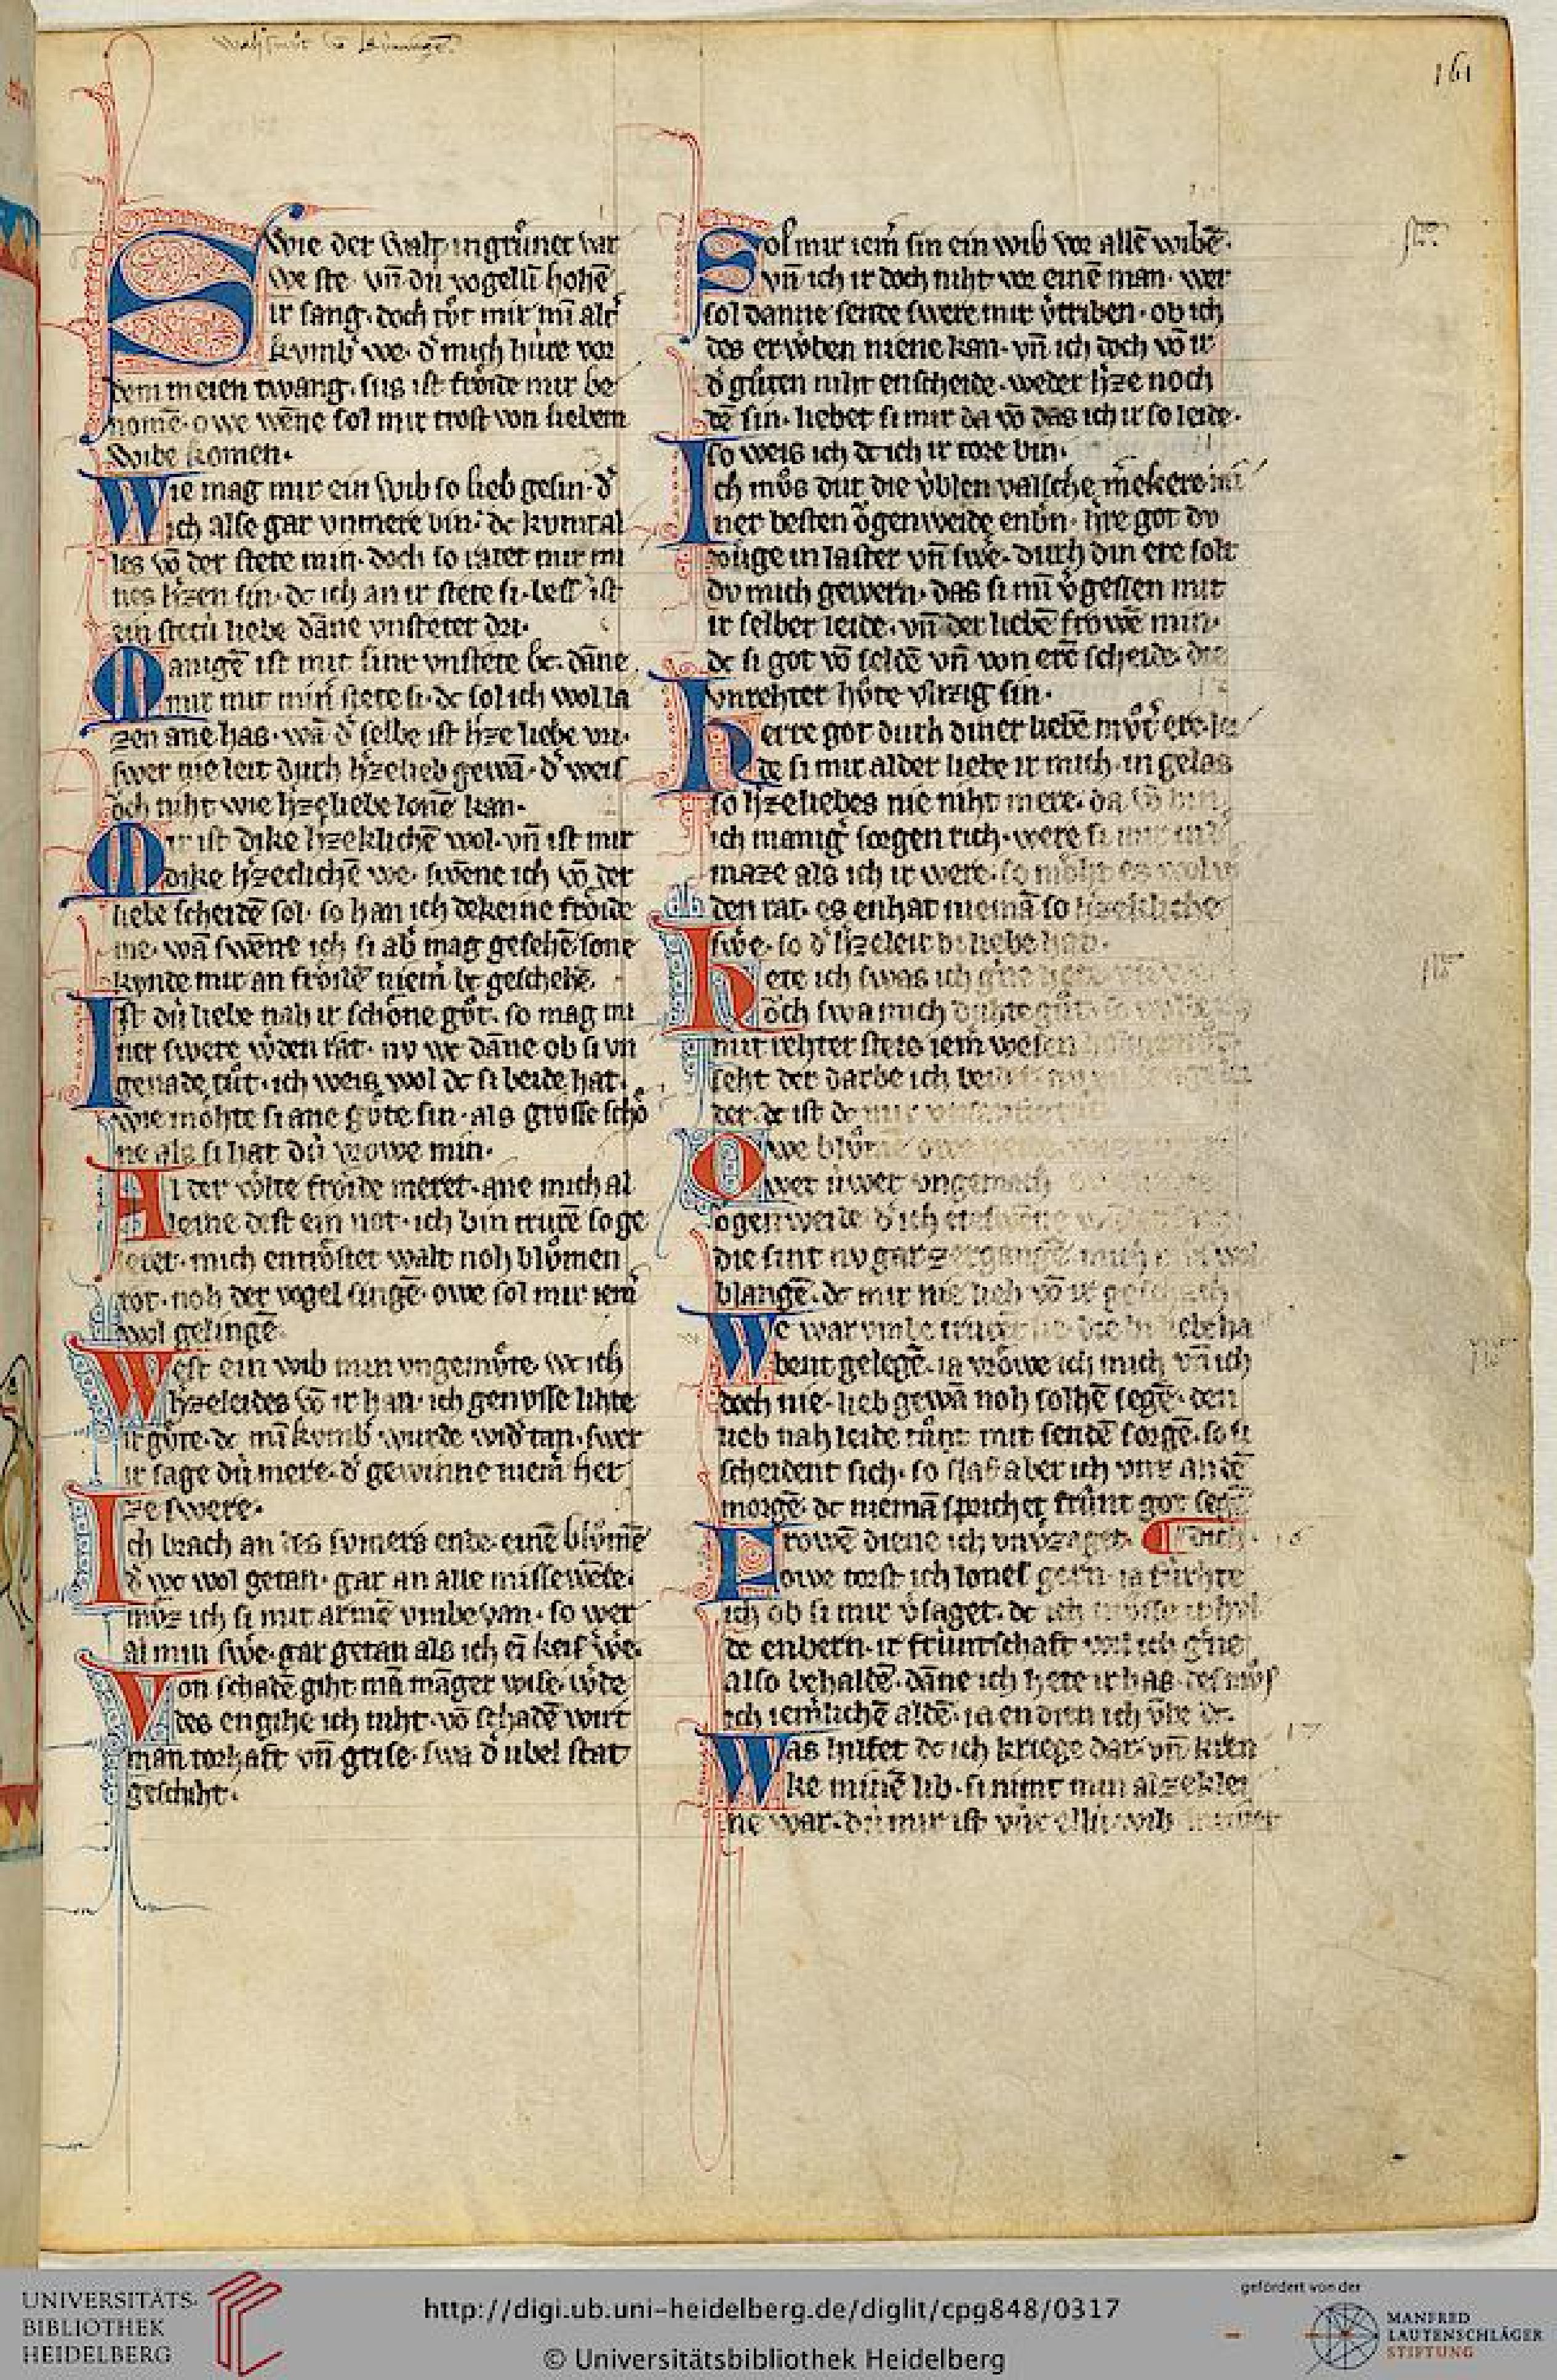 161
Swie der walt in gruͦner var
we ste. vn̄ dú vogellī hohē
ir sang. doch tvͦt mir mī alt᷑
kvmb᷑ we. d᷑ mich húre vor
dem meien twang. sus ist froͤide mir be
nomē. owe wēne sol mir trost von liebem
wibe komen.
Wie mag mir ein wib so lieb gesin. d᷑
ich alse gar vnmere bin. dc kvmt al
les vō der stete min. doch so ratet mir mi
nes h᷑zen sin. dc ich an ir stete si. bess᷑ ist
ein stetú liebe dāne vnsteter dri.
Manigē ist mit sinr vnstete bc. dāne
mir mit min᷑ stete si. dc sol ich wol la
zen ane has. wā d᷑ selbe ist h᷑ze liebe vri.
swer nie leit durch h᷑zelieb gewā. d᷑ weis
oͮch niht wie h᷑zeliebe lonē kan.
Mir ist dike h᷑zeklichē wol. vn̄ ist mir
dike h᷑zeclichē we. swēne ich vō der
liebe scheidē sol. so han ich dekeine froͤide
me. wā swēne ich si ab᷑ mag gesehē sone
kvnde mir an froͤidē niem᷑ bc geschehē.
Ist dú liebe nah ir schoͤne gvͦt. so mag mi
ner swere w᷑den rat. nv we dāne ob si vn
genade tuͦt. ich weis wol dc si beide hat.
wie moͤhte si ane guͤte sin. als grosse schoͤ
ne als si hat dú vrowe min.
Al der w᷑lte froͤide meret. ane mich al
leine dest ein not. ich bin trurē so ge
leret. mich entroͤstet walt noh blvͦmen
rot. noh der vogel singē. owe sol mir iem᷑
wol gelingē.
West ein wib min vngemvͤte. wc ich
h᷑zeleides vō ir han. ich genvsse lihte
ir gvͤte. dc mī kvmb᷑ wurde wid᷑ tan. swer
ir sage dú mere. d᷑ gewinne niem᷑ her
ze swere.
Ich brach an des svmers ende. einē blvͦmē
d᷑ wc wol getan. gar an alle missewēde.
mvͦz ich si mit armē vmbevan. so wer
al min sw᷑e. gar getan als ich eī keis᷑ w᷑e.
Von schadē giht mā māger wise w᷑de
des engihe ich niht. vō schadē wirt
man torhaft vn̄ grise. swa d᷑ úbel stat
geschiht.
Sol mir iem᷑ sin ein wib vor allē wibē.
vn̄ ich ir doch niht vor einē man. wer
sol danne sende swere mir v᷑triben. ob ich
des erw᷑ben niene kan. vn̄ ich doch vō ir
d᷑ guͦten niht enscheide. weder h᷑ze noch
dē sin. liebet si mir da vō das ich ir so leide.
so weis ich dc ich ir tore bin.
Ich mvͦs dur die v́blen valschē merkere mi
ner besten oͮgenweide enb᷑n. h᷑re got dv
toͮuge in laster vn̄ sw᷑e. durch din ere solt
dv mich gewern. das si mī v᷑gessen mit
ir selber leide. vn̄ der liebē frowē min.
dc si got vō seldē vn̄ von erē scheide. die
vnrehter hvͦte vlizig sin.
Herre got durch diner liebē mvͦt᷑ ere. lei
de si mir alder liebe ir mich. in gelas
so h᷑zeliebes nie niht mere. da vō bin
ich manig᷑ sorgen rich. were si mir in d᷑
maze als ich ir were. so moͤht es wol w᷑
den rat. es enhat niemā so h᷑zekliche
sw᷑e. so d᷑ h᷑zeleit bi liebe hat.
Hete ich swas ich g᷑ne
oͮch swa mich duhte guͦt.
mit rehter stete iem᷑ wesen
seht der darbe ich
der. dc ist
Owe blvͦmē owe
owet úwer vngemach
oͮgenweide. d᷑ ich
die sint nv gar zergangē. mich wol
blangē. dc mir nie lieb vō ir geschach.
We war vmbe die bi liebe ha
bent gelegē. ia vroͤwe ich mich vn̄ ich
doch nie. lieb gewā noh solhē segē. den
lieb nah leide tuͦnt mit sendē sorgē. so si
scheident sich. so slaf aber ich vnz an dē
morgē. dc niemā sprichet frúnt got segē
dich.
Frowē diene ich vnv᷑zaget.
owe torst ich lones gern. ia fúrhte
ich ob si mir v᷑saget. dc ich mvͦsse ir hvl
de enbern. ir frúntschaft wil ich g᷑ne
also behaltē. dāne ich hete ir has. des mvͦs
ich iem᷑lichē aldē. ia en dien ich v́be dc.
Was hilfet dc ich kriege dar. vn̄ krēn
ke minē lib. si nimt min alze klei
ne war. dú mir ist vúr ellú wib
UNIVERSITÄTS-
BIBLIOTHEK
HEIDELBERG
http://digi.ub.uni-heidelberg.de/diglit/cpg848/0317
© Universitätsbibliothek Heidelberg
gefördert von der
MANFRED
LAUTENSCHLÄGER
STIFTUNG